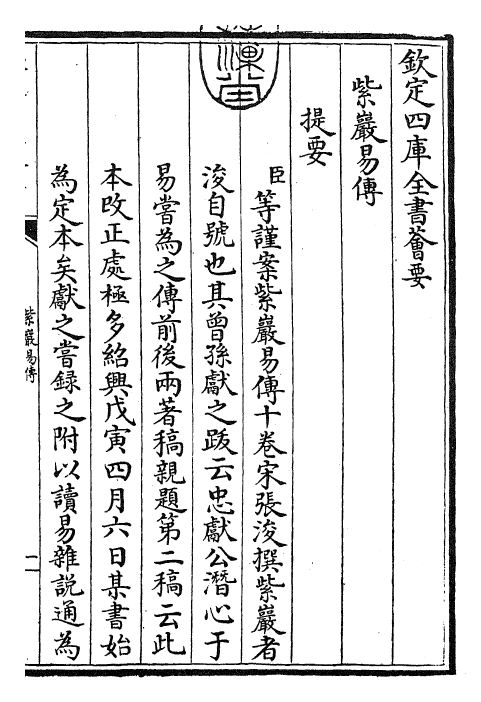 欽定四庫全書薈要
紫巖易傳
提要
臣等謹案紫巖易傳十卷宋張浚撰紫巖者
浚自號也其曾孫獻之跋云忠獻公潛心于
易嘗為之傳前後兩著稿親題第二稿云此
本改正處極多紹興戊寅四月六日某書始
為定本矣獻之嘗録之附以讀易雜說通為
紫巖易傳
一